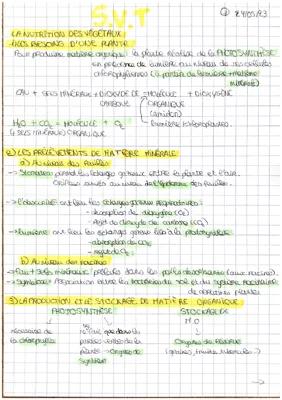 S.V.T
24/05/23
LA NUTRITION DES VÉGÉTAUX
1) LES BESOINS D'UNE PLANTE
Pour produire matière organique la plante réalise de la PHOTOSYNTHÈSE
en présence de lumière au niveau de ses cellules
chlorophylliennes (à partir de lumière + matière
minérale)
EAU + SELS MINÉRAUX + DIOXYDE DE → MOLÉCULE + DIOXYGÈNE
CARBONE ORGANIQUE
(amidon)
H2O + CO2 = MOLÉCULE + O2
+ SELS MINÉRAUX ORGANIQUE
2) LES PRÉLÈVEMENTS DE MATIÈRE MINÉRALE
a) Au niveau des feuilles
→ Stomates : permet les échanges gazeux entre la plante et l'air.
Orifices situés au niveau de l'épiderme des feuilles.
→ L'obscurité ont lieu les échanges gazeux respiratoires :
- absorption de dioxygène (O2)
- rejet du dioxyde de carbone (CO2)
→ Lumière ont lieu les échanges gazeux liés à la photosynthèse
- absorption de CO2
- rejet de O2
b) Au niveau des racines
→ Eau + sels minéraux : prélevés dans les poils absorbants (aux racines).
→ Symbiose : Association entre les bactéries du sol et du système racinaire
de certaines plantes
3) LA PRODUCTION ET LE STOCKAGE DE MATIÈRE ORGANIQUE
PHOTOSYNTHÈSE STOCKAGE
M.O
nécessaire de
la chlorophylle
plante → Organes de
synthèse
Organes de réserve
(graines, fruits, tubercules...)